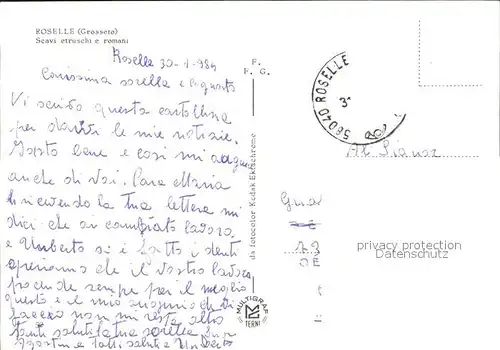 ROSELLE (Grosseto)
Scavi etruschi e romani
Roselle 30-1-984
Carissima sorella e cognato
Vi scrivo questa cartolina
per darvi le mie notizie.
Io sto bene e così mi auguro
anche di Voi. Cara Maria
ricevendo la tua lettera mi
dici che ai cambiato lavoro,
e Umberto si è fatto i denti
speriamo che il vostro lavoro
proceda sempre per il meglio
questo è il mio augurio che Vi
faccio non mi resta altro
tanti saluti la tua sorella
Agostino e tutti saluti a Umberto
F.
F. G.
da fotocolor Kodak Ektachrome
MULTIGRAF
TERNI
56040 ROSELLE
Al Signor
privacy protection
Datenschutz